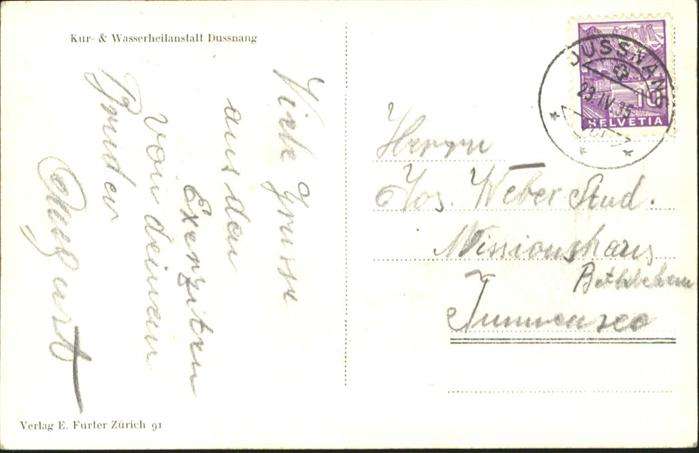 Kur- & Wasserheilanstalt Dussnang
Viele Grüsse
aus den
Exerzitien
von deinem
Bruder
August
DUSSNANG
23.IV.35
10
HELVETIA
Herrn
Jos. Weber Stud.
Missionshaus
Bethlehem
Immensee
Verlag E. Furter Zürich 91